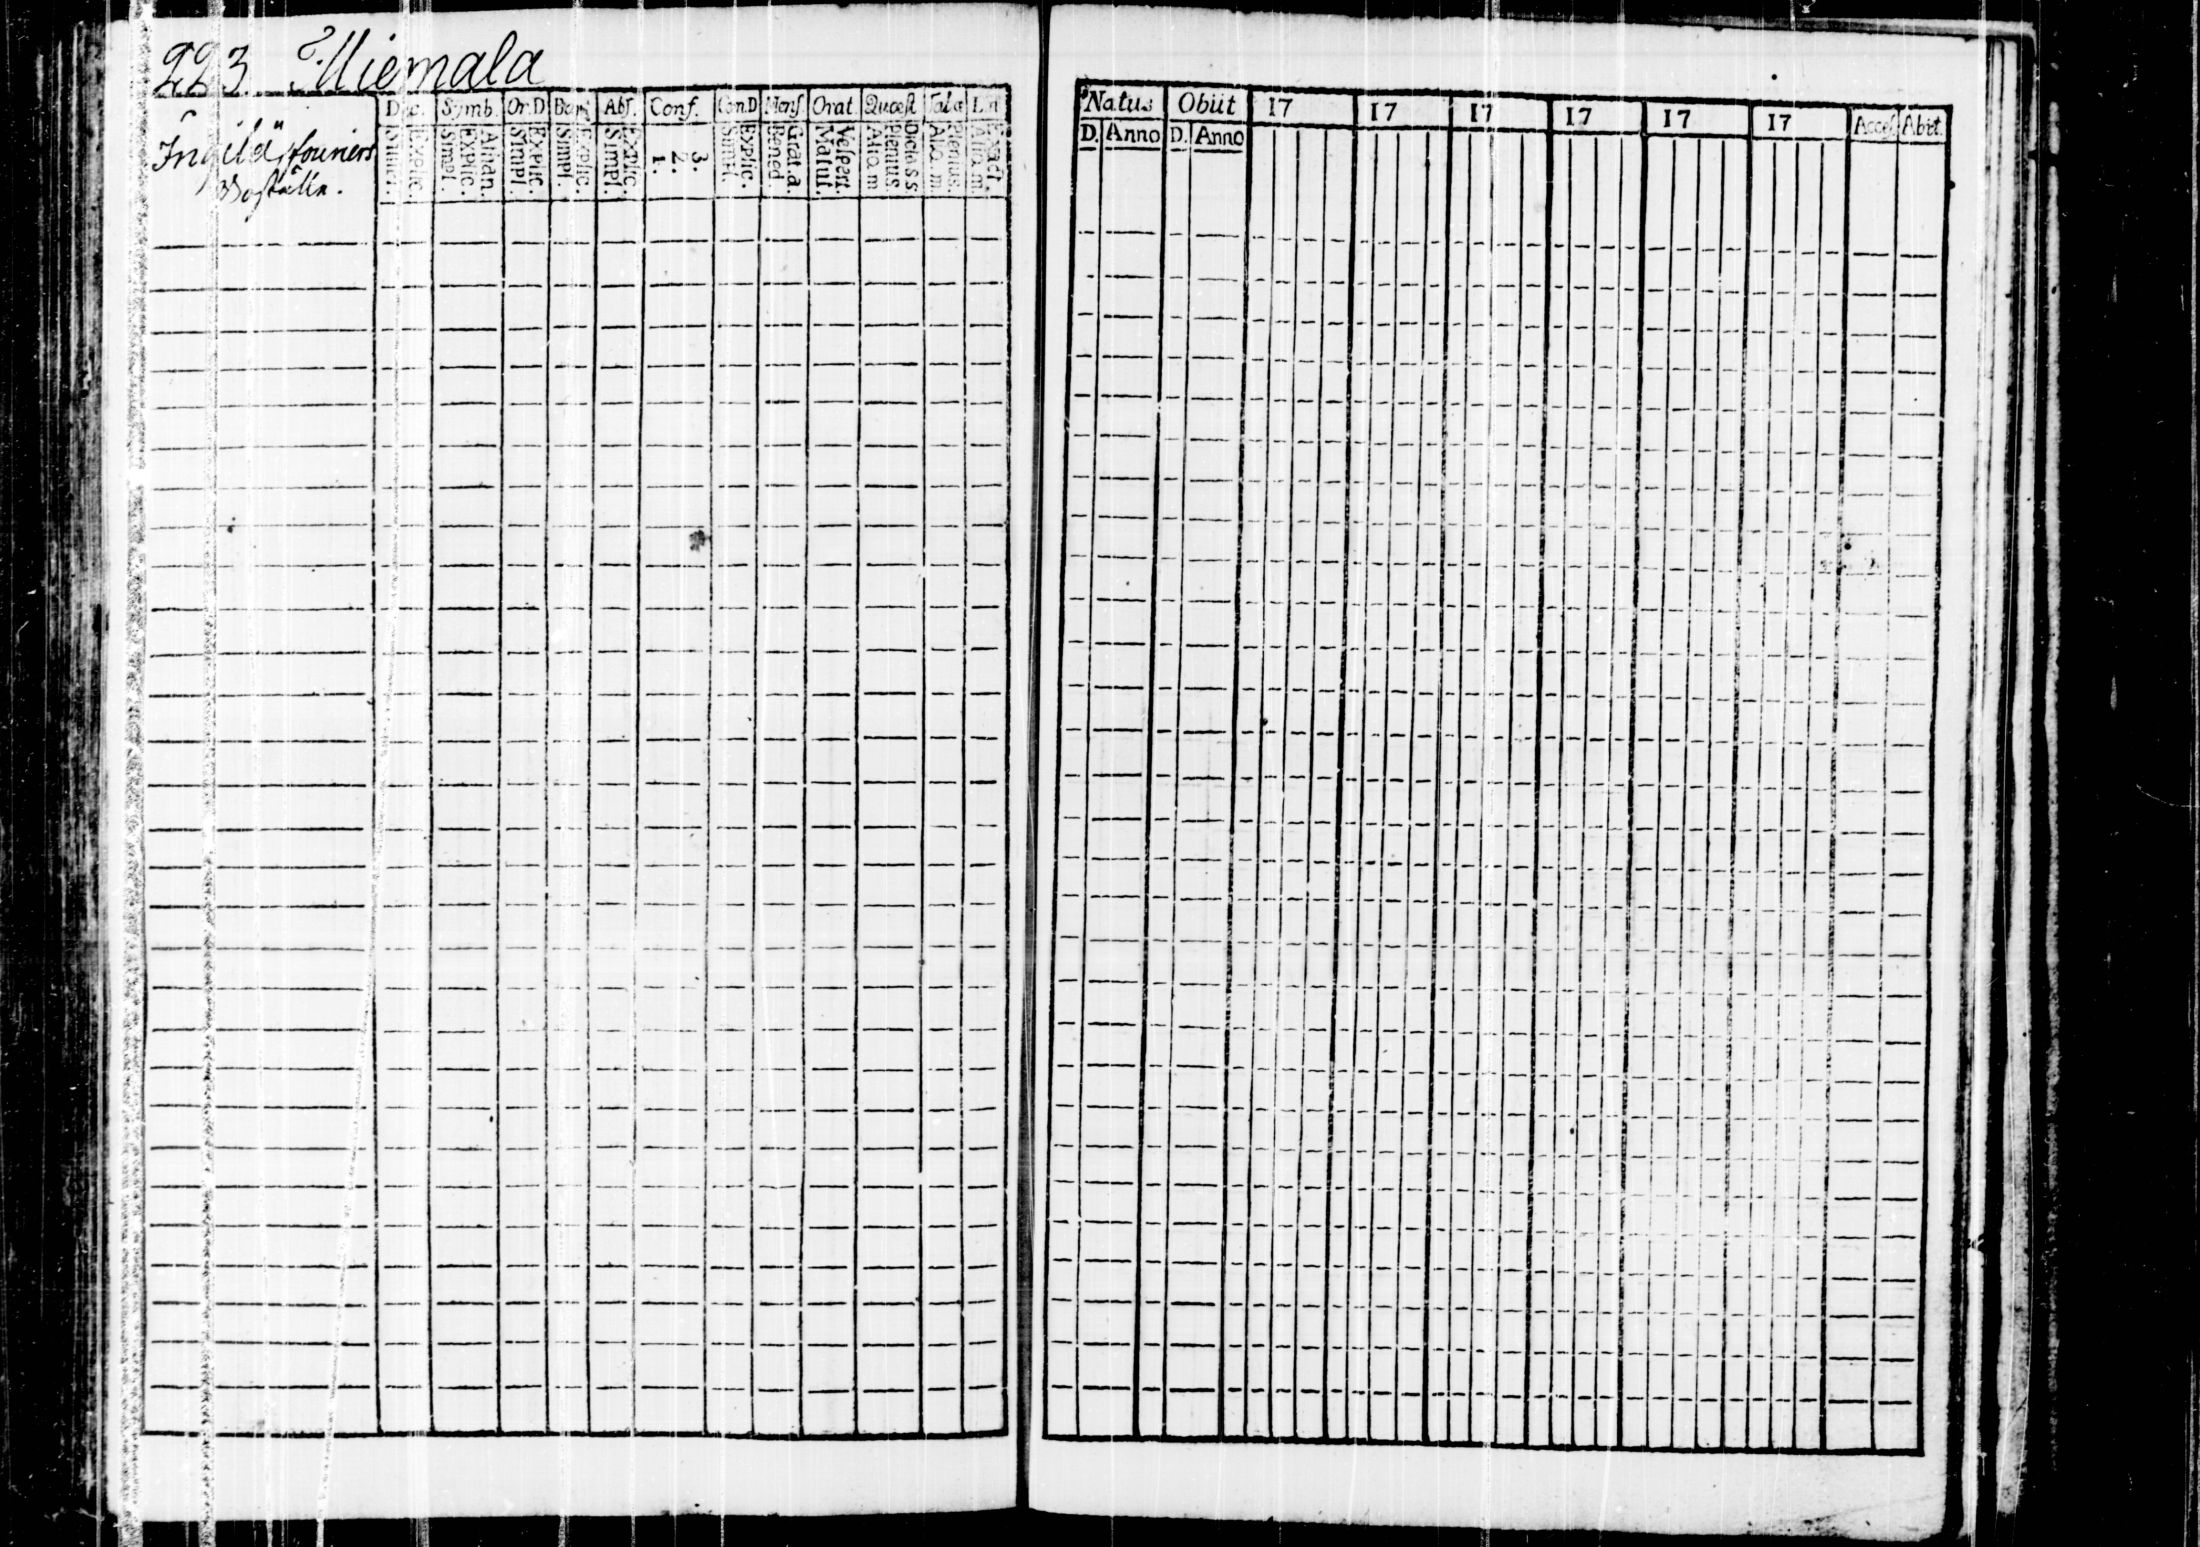 223. Miemala
Ingilä, fouriers
Boställe.
Dec. Symb. Or.D Bapt Abs. Conf. Cœn.D Mens Orat Quæst Tab.œ
Simpl. Explic. Simpl. Explic. Athan. Simpl. Explic. Simpl. Explic. Simpl. Explic. 1. 2. 3. Explic. Bened. Grat.a Matut. Vespert. Aliq.m Plenius Dictas s Aliq.m Plenius. Aliq.m. Exact.
Natus Obiit 17 17 17 17 17 17 Acces Abiit.
D. Anno D. Anno